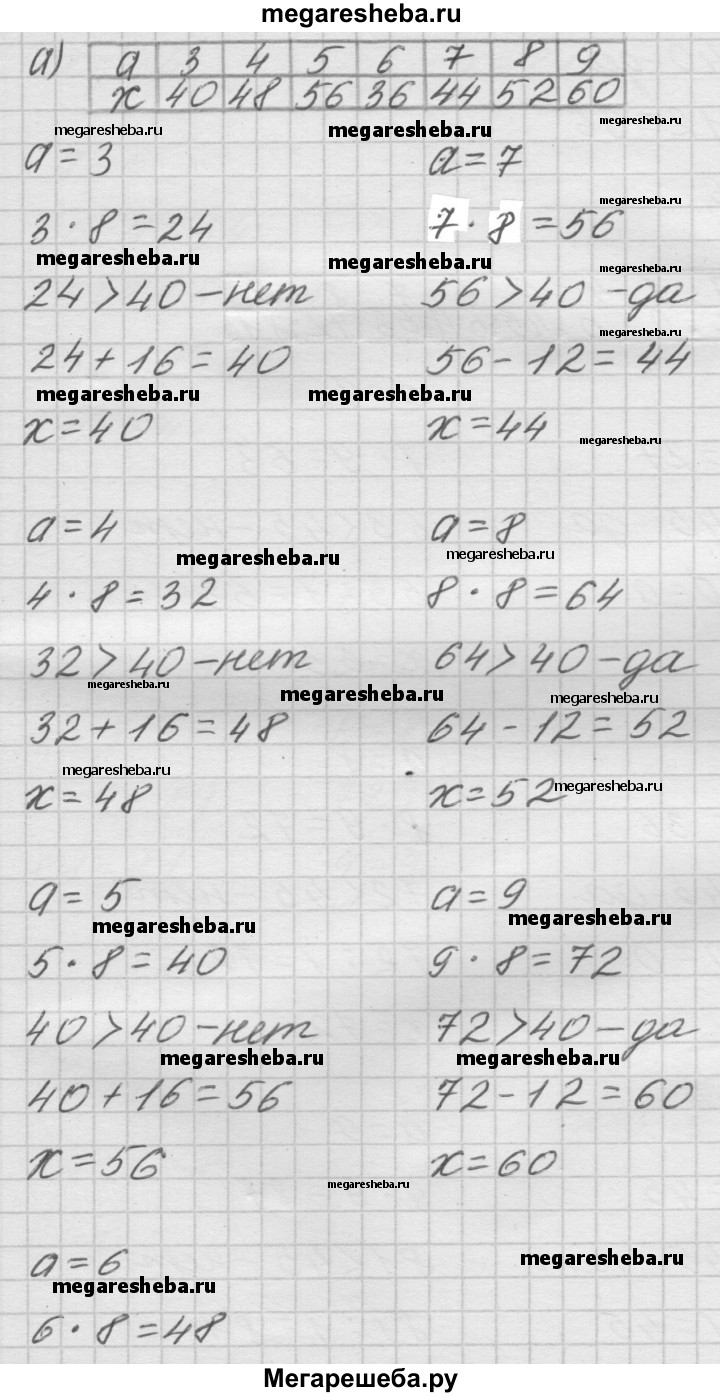 megaresheba.ru
а) а 3 4 5 6 7 8 9
х 40 48 56 36 44 52 60
megaresheba.ru megaresheba.ru megaresheba.ru
а = 3
а = 7
megaresheba.ru
3 · 8 = 24
7 · 8 = 56
megaresheba.ru megaresheba.ru megaresheba.ru
24 > 40 – нет
56 > 40 – да
megaresheba.ru
24 + 16 = 40
56 – 12 = 44
megaresheba.ru megaresheba.ru
х = 40
х = 44
megaresheba.ru
а = 4
а = 8
megaresheba.ru megaresheba.ru
4 · 8 = 32
8 · 8 = 64
32 > 40 – нет
64 > 40 – да
megaresheba.ru megaresheba.ru megaresheba.ru
32 + 16 = 48
64 – 12 = 52
megaresheba.ru
х = 48
х = 52
megaresheba.ru
а = 5
а = 9
megaresheba.ru megaresheba.ru
5 · 8 = 40
9 · 8 = 72
40 > 40 – нет
72 > 40 – да
megaresheba.ru megaresheba.ru
40 + 16 = 56
72 – 12 = 60
х = 56
х = 60
megaresheba.ru
а = 6
megaresheba.ru
megaresheba.ru
6 · 8 = 48
Мегарешеба.ру